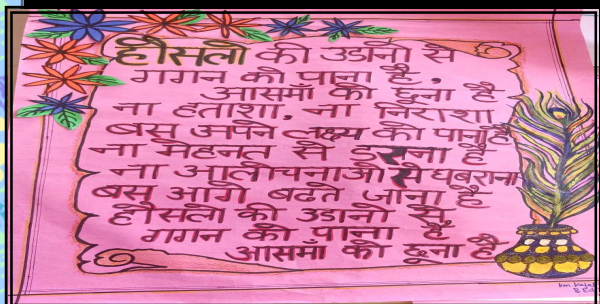 हौसलो की उडानो से
गगन को पाना है,
आसमाँ को छूना है
ना हताशा, ना निराशा
बस अपने लक्ष्य को पाना है
ना मेहनत से डरना है
ना आलोचनाओ से घबराना
बस आगे बढते जाना है
हौसलो की उडानो से,
गगन को पाना है
आसमाँ को छूना है